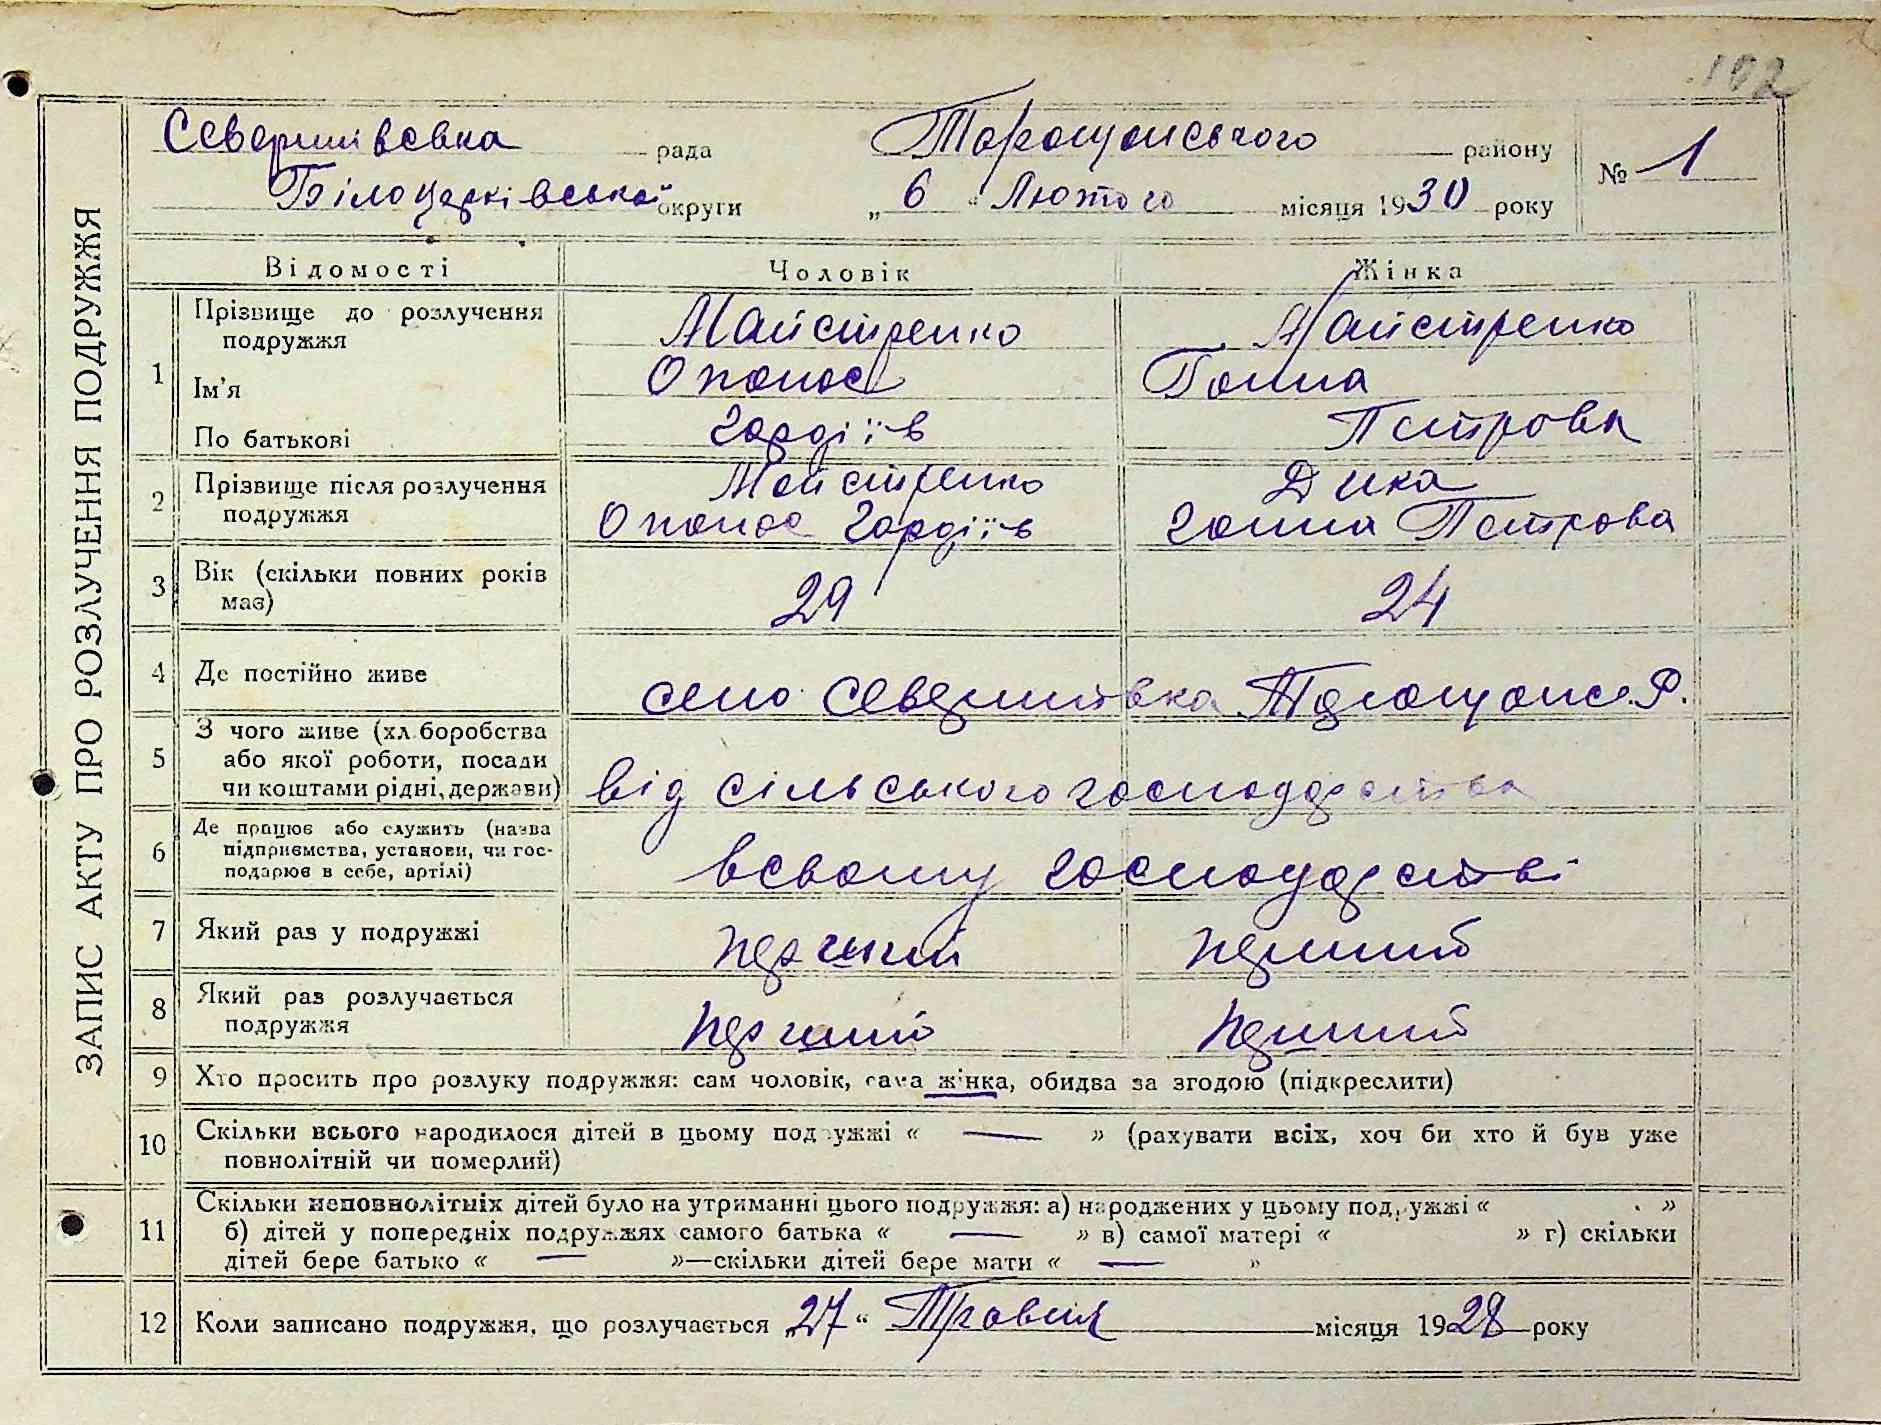 102
Северинівська рада Таращанського району № 1
Білоцерківської округи „6“ Лютого місяця 1930 року
ЗАПИС АКТУ ПРО РОЗЛУЧЕННЯ ПОДРУЖЖЯ
Відомості Чоловік Жінка
1 Прізвище до розлучення подружжя Майстренко Майстренко
Ім'я Опанас Ганна
По батькові Гордіїв Петрова
2 Прізвище після розлучення Майстренко Дика
подружжя Опанас Гордіїв Ганна Петрова
3 Вік (скільки повних років
має) 29 24
4 Де постійно живе село Северинівка Таращанс. Р.
5 З чого живе (хліборобства
або якої роботи, посади
чи коштами рідні, держави) від сільського господарства
6 Де працює або служить (назва
підприємства, установи, чи гос-
подарює в себе, артілі) всвоему господарстві
7 Який раз у подружжі перший перший
8 Який раз розлучається
подружжя перший перший
9 Хто просить про розлуку подружжя: сам чоловік, сама жінка, обидва за згодою (підкреслити)
10 Скільки всього народилося дітей в цьому подружжі « — » (рахувати всіх, хоч би хто й був уже
повнолітній чи померлий)
11 Скільки неповнолітніх дітей було на утриманні цього подружжя: а) народжених у цьому подружжі « »
б) дітей у попередніх подружжях самого батька « — » в) самої матері « » г) скільки
дітей бере батько « — »—скільки дітей бере мати « — »
12 Коли записано подружжя, що розлучається „27“ Травня місяця 1928 року